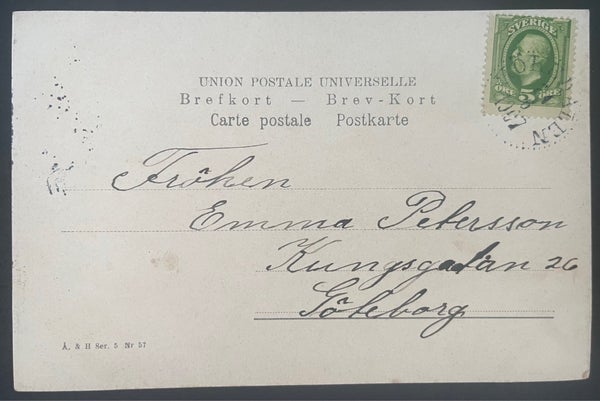 SVERIGE
5
ÖRE ÖRE
UNION POSTALE UNIVERSELLE
Brefkort — Brev-Kort
Carte postale Postkarte
Fröken
Emma Petersson
Kungsgatan 26
Göteborg
Å. & H Ser. 5 Nr 57